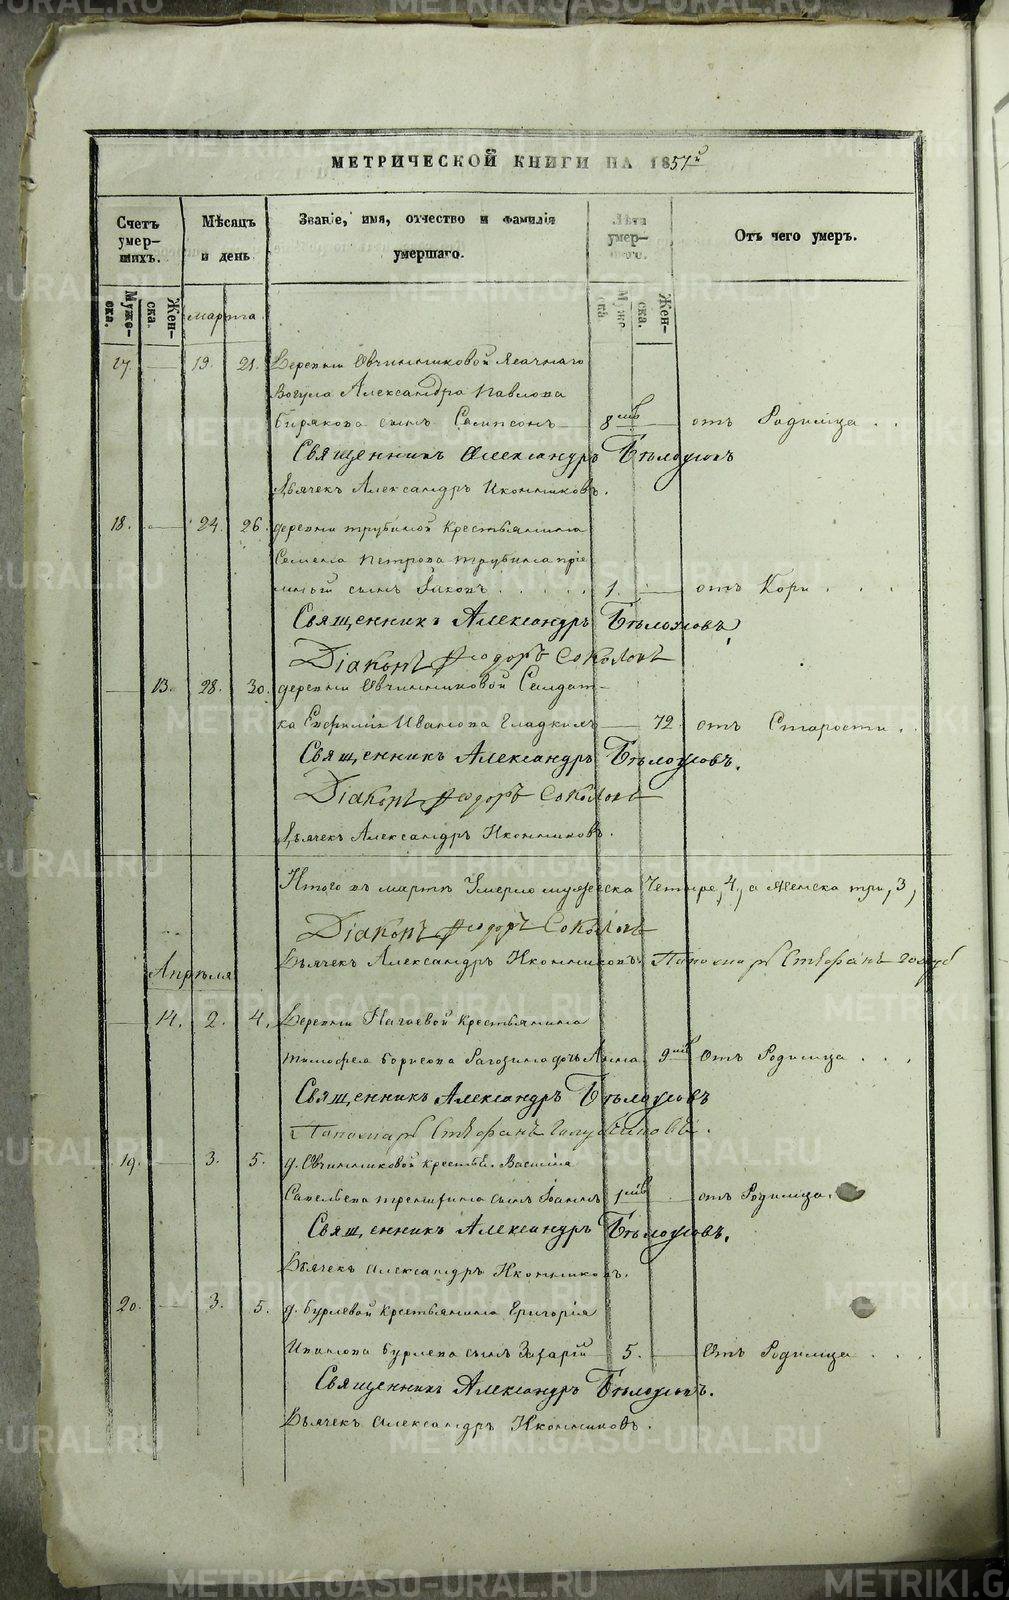 МЕТРИЧЕСКОЙ КНИГИ НА 1857й
Счетъ умер-шихъ.
Мѣсяцъ и день
Званіе, имя, отчество и фамилія умершаго.
Лѣта умер-шаго.
Отъ чего умеръ.
Муже-ска.
Жен-ска.
Муже-ска
Жен-ска.
марта.
17. — 19. 21. Деревни Овчинниковой Ясачнаго
Вогула Александра Павлова
сынъ Сампсонъ — 8 — отъ Родимца . .
Священникъ Александръ Бѣлоусовъ
Дьячекъ Александръ Иконниковъ.
18. — 24. 26. деревни Трубиной крестьянина
Семена Петрова Трубина прiе-
мный сынъ Iаковъ . . . . . 1. — отъ Кори . . .
Священникъ Александръ Бѣлоусовъ,
Дiаконъ Ѳеодоръ Соколовъ
— 13. 28. 30. деревни Овчинниковой Солдат-
ка Иванова Гладкихъ — 72 отъ Старости . .
Священникъ Александръ Бѣлоусовъ.
Дiаконъ Ѳеодоръ Соколовъ
Дьячекъ Александръ Иконниковъ.
Итого въ мартѣ Умерло мужеска Четыре, 4, а Женска три, 3,
Дiаконъ Ѳеодоръ Соколовъ
Дьячекъ Александръ Иконниковъ Пономарь Стефанъ
Апрѣля
— 14. 2. 4. Деревни Нагаевой крестьянина
Тимофея Борисова Рагозина дочь Анна 9 Отъ Родимца . . .
Священникъ Александръ Бѣлоусовъ
Пономарь Стефанъ
19. — 3. 5. д. Овчинниковой крестья. Василiя
Савельева сынъ Iоаннъ 1 — отъ Родимца.
Священникъ Александръ Бѣлоусовъ.
Дьячекъ Александръ Иконниковъ.
20. — 3. 5. д. Бурлевой крестьянина Григорiя
Иванова Бурлева сынъ Захарiй 5. — Отъ Родимца . . .
Священникъ Александръ Бѣлоусовъ.
Дьячекъ Александръ Иконниковъ.
METRIKI.GASO-URAL.RU